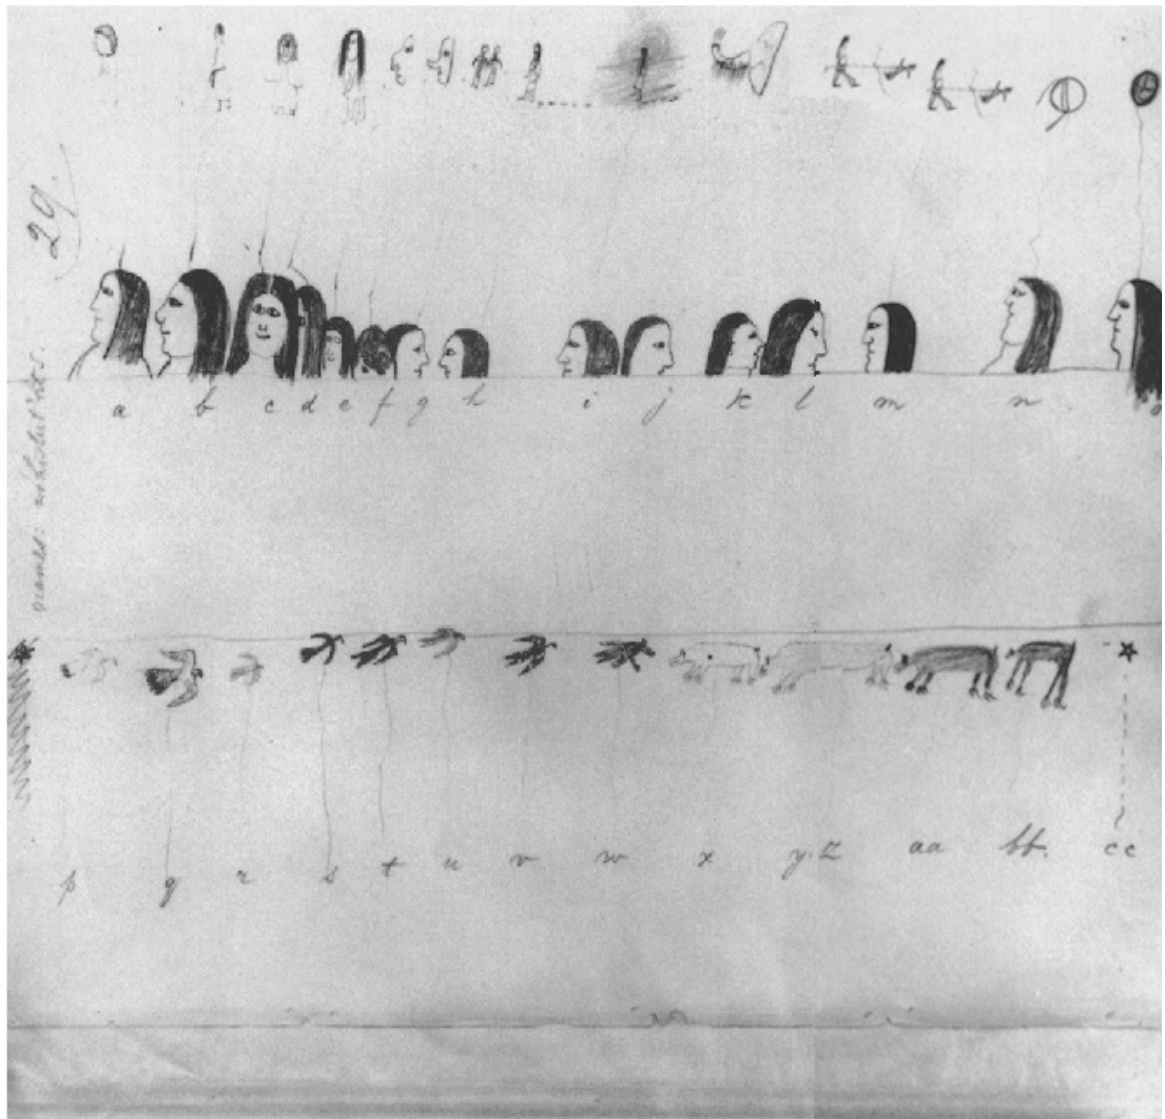 29.
a b c d e f g h i j k l m n o
names:
p q r s t u v w x y. z aa bb. cc